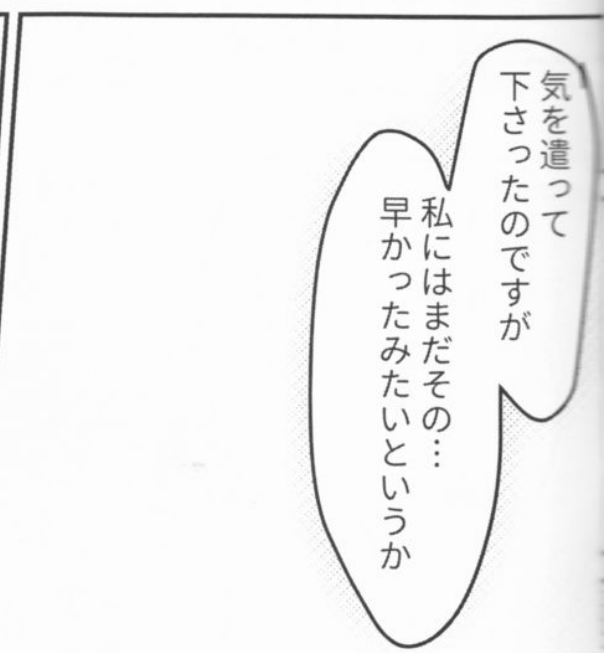 気を遣って
下さったのですが
私にはまだその…
早かったみたいというか